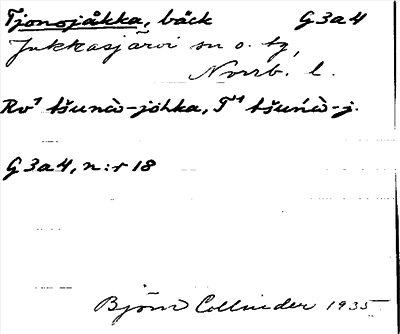 Tjonojåkka, bäck G3a4
Jukkasjärvi sn o. tg,
Norrb. l.
Rv¹ tšunὼ-johka, T¹ tšuńὼ-j.
G3a4, n:r 18
Björn Collinder 1935